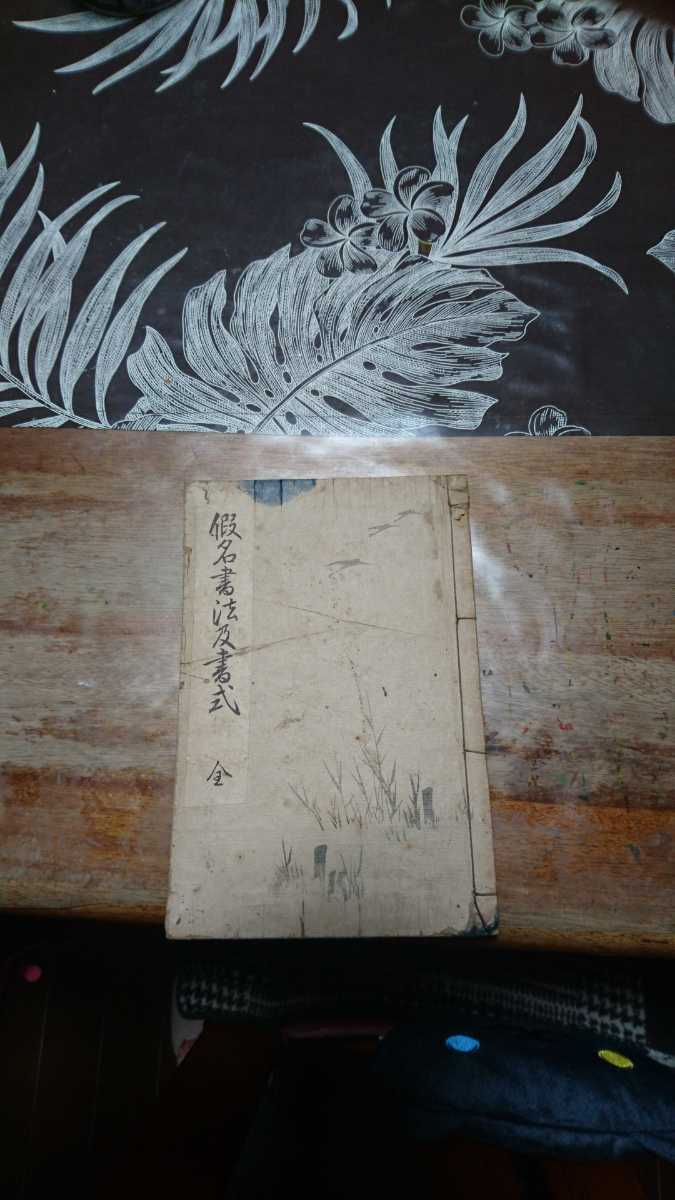 假名書法及書式
全